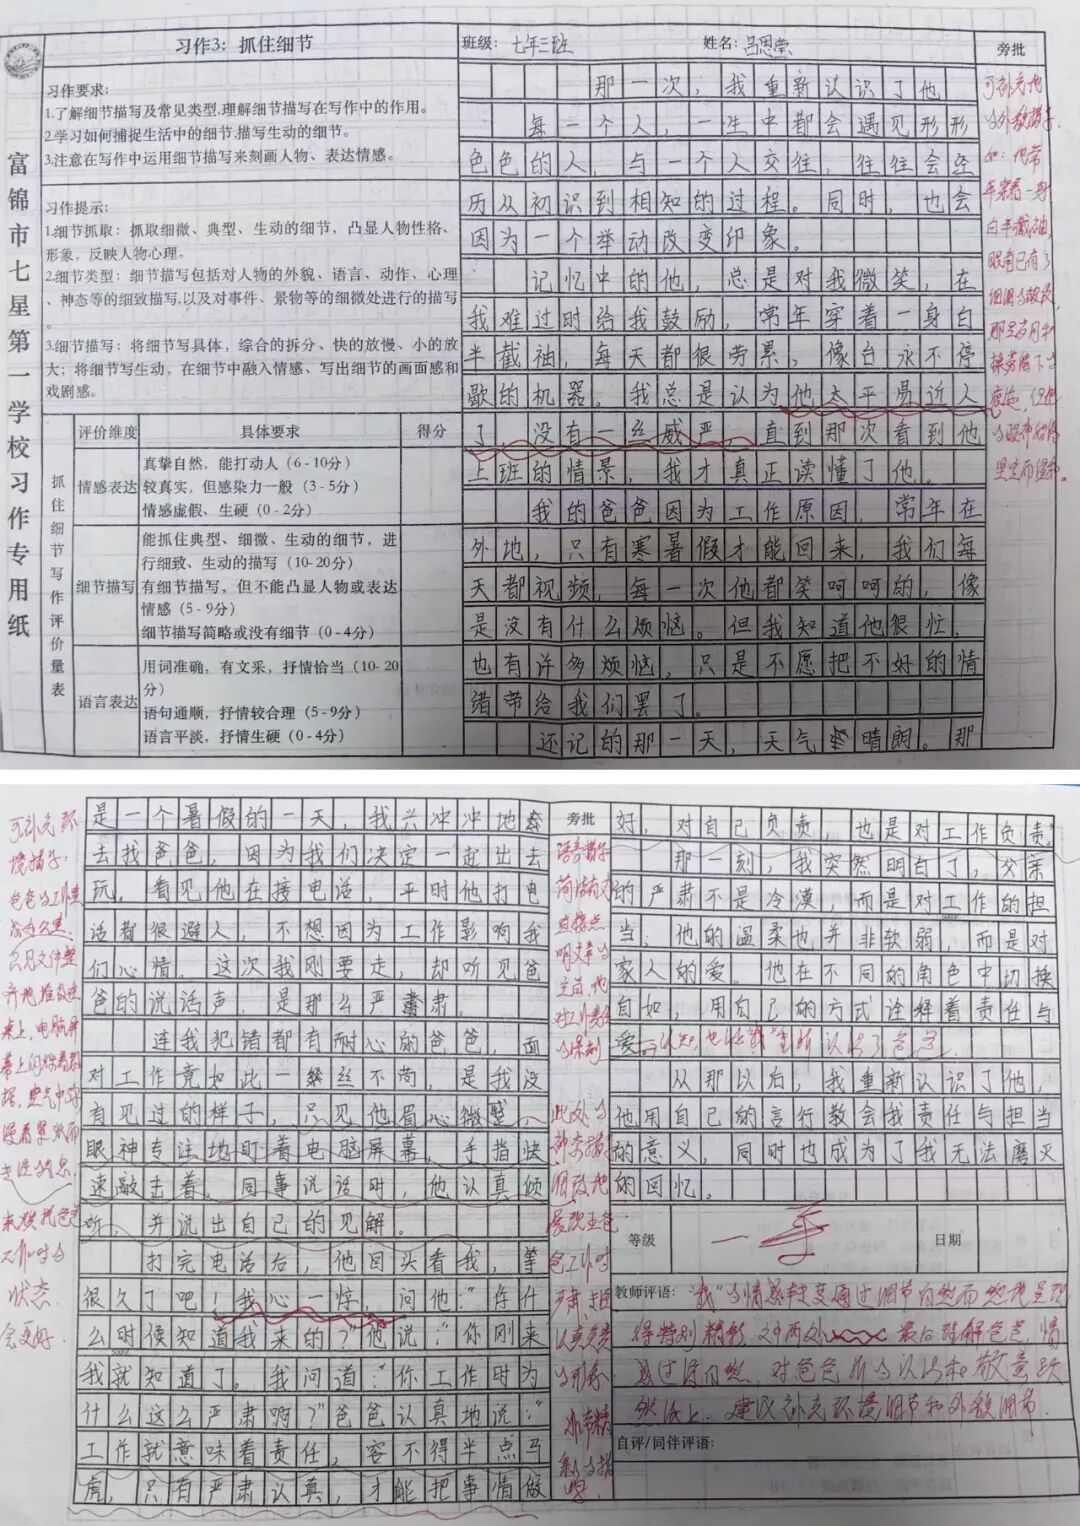 富锦市七星第一学校习作专用纸
习作3：抓住细节
习作要求:
1.了解细节描写及常见类型,理解细节描写在写作中的作用。
2.学习如何捕捉生活中的细节,描写生动的细节。
3.注意在写作中运用细节描写来刻画人物、表达情感。
习作提示:
1.细节抓取：抓取细微、典型、生动的细节，凸显人物性格、
形象，反映人物心理。
2.细节类型：细节描写包括对人物的外貌、语言、动作、心理
、神态等的细致描写,以及对事件、景物等的细微处进行的描写
。
3.细节描写：将细节写具体，综合的拆分、快的放慢、小的放
大；将细节写生动，在细节中融入情感、写出细节的画面感和
戏剧感。
抓住细节写作评价量表
评价维度 具体要求 得分
情感表达
真挚自然，能打动人（6-10分）
较真实，但感染力一般（3-5分）
情感虚假、生硬（0-2分）
细节描写
能抓住典型、细微、生动的细节，进
行细致、生动的描写（10-20分）
有细节描写，但不能凸显人物或表达
情感（5-9分）
细节描写简略或没有细节（0-4分）
语言表达
用词准确，有文采，抒情恰当（10-20
分）
语句通顺，抒情较合理（5-9分）
语言平淡，抒情生硬（0-4分）
班级：七年三班 姓名：吕恩莹
那一次，我重新认识了他
每一个人，一生中都会遇见形形
色色的人，与一个人交往，往往会经
历从初识到相知的过程。同时，也会
因为一个举动改变印象。
记忆中的他，总是对我微笑，在
我难过时给我鼓励，常年穿着一身白
半截袖，每天都很劳累，像台永不停
歇的机器。我总是认为他太平易近人
了，没有一丝威严，直到那次看到他
上班的情景，我才真正读懂了他。
我的爸爸因为工作原因，常年在
外地，只有寒暑假才能回来，我们每
天都视频，每一次他都笑呵呵的，像
是没有什么烦恼。但我知道他很忙，
也有许多烦恼，只是不愿把不好的情
绪带给我们罢了。
还记的那一天，天气晴朗。那
旁批
可补充他
的外貌描写.
如：他常
年穿着一身
白半截袖,
眼角已有了
细细的皱纹,
那是岁月和
操劳留下的
痕迹，但他
的眼神始终
坚定而温和。
可补充环
境描写:
爸爸的工作室
只见文件整
齐地堆放在
桌上,电脑屏
幕上闪烁着数
据，空气中弥
漫着紧张而
来烘托爸爸
工作时的
状态.
会更好
是一个暑假的一天，我兴冲冲地
去找爸爸，因为我们决定一起出去
玩。看见他在接电话，平时他打电
话都很避人，不想因为工作影响我
们心情。这次我刚要走，却听见爸
爸的说话声，是那么严肃。
连我犯错都有耐心的爸爸，面
对工作竟如此一丝不苟，是我没
有见过的样子，只见他眉心微蹙，
眼神专注地盯着电脑屏幕，手指快
速敲击着。同事说话时，他认真倾
听，并说出自己的见解。
打完电话后，他回头看我，等
很久了吧！我心一惊，问他：“你什
么时候知道我来的？”他说：“你刚来
我就知道了。我问道：“你工作时为
什么这么严肃啊？”爸爸认真地说：“
工作就意味着责任，容不得半点马
虎，只有严肃认真，才能把事情做
旁批
语言描写
简洁有力
点明文章的
主旨，他
对工作责任
的深刻
此处的
神态描写
细致地
展现出爸
爸工作时
严肃
认真负责
的形象
好，对自己负责，也是对工作负责”
那一刻，我突然明白了，父亲
的严肃不是冷漠，而是对工作的担
当；他的温柔也并非软弱，而是对
家人的爱。他在不同的角色中切换
自如，用自己的方式诠释着责任与
爱。
从那以后，我重新认识了他，
他用自己的言行教会我责任与担当
的意义，同时也成为了我无法磨灭
的回忆。
等级 日期
教师评语：“我”的情感转变通过细节自然而然地呈现
得特别精彩, 最后理解爸爸，情
感过渡自然，对爸爸的认识和敬意跃
然纸上. 建议补充环境细节和外貌细节.
自评/同伴评语：